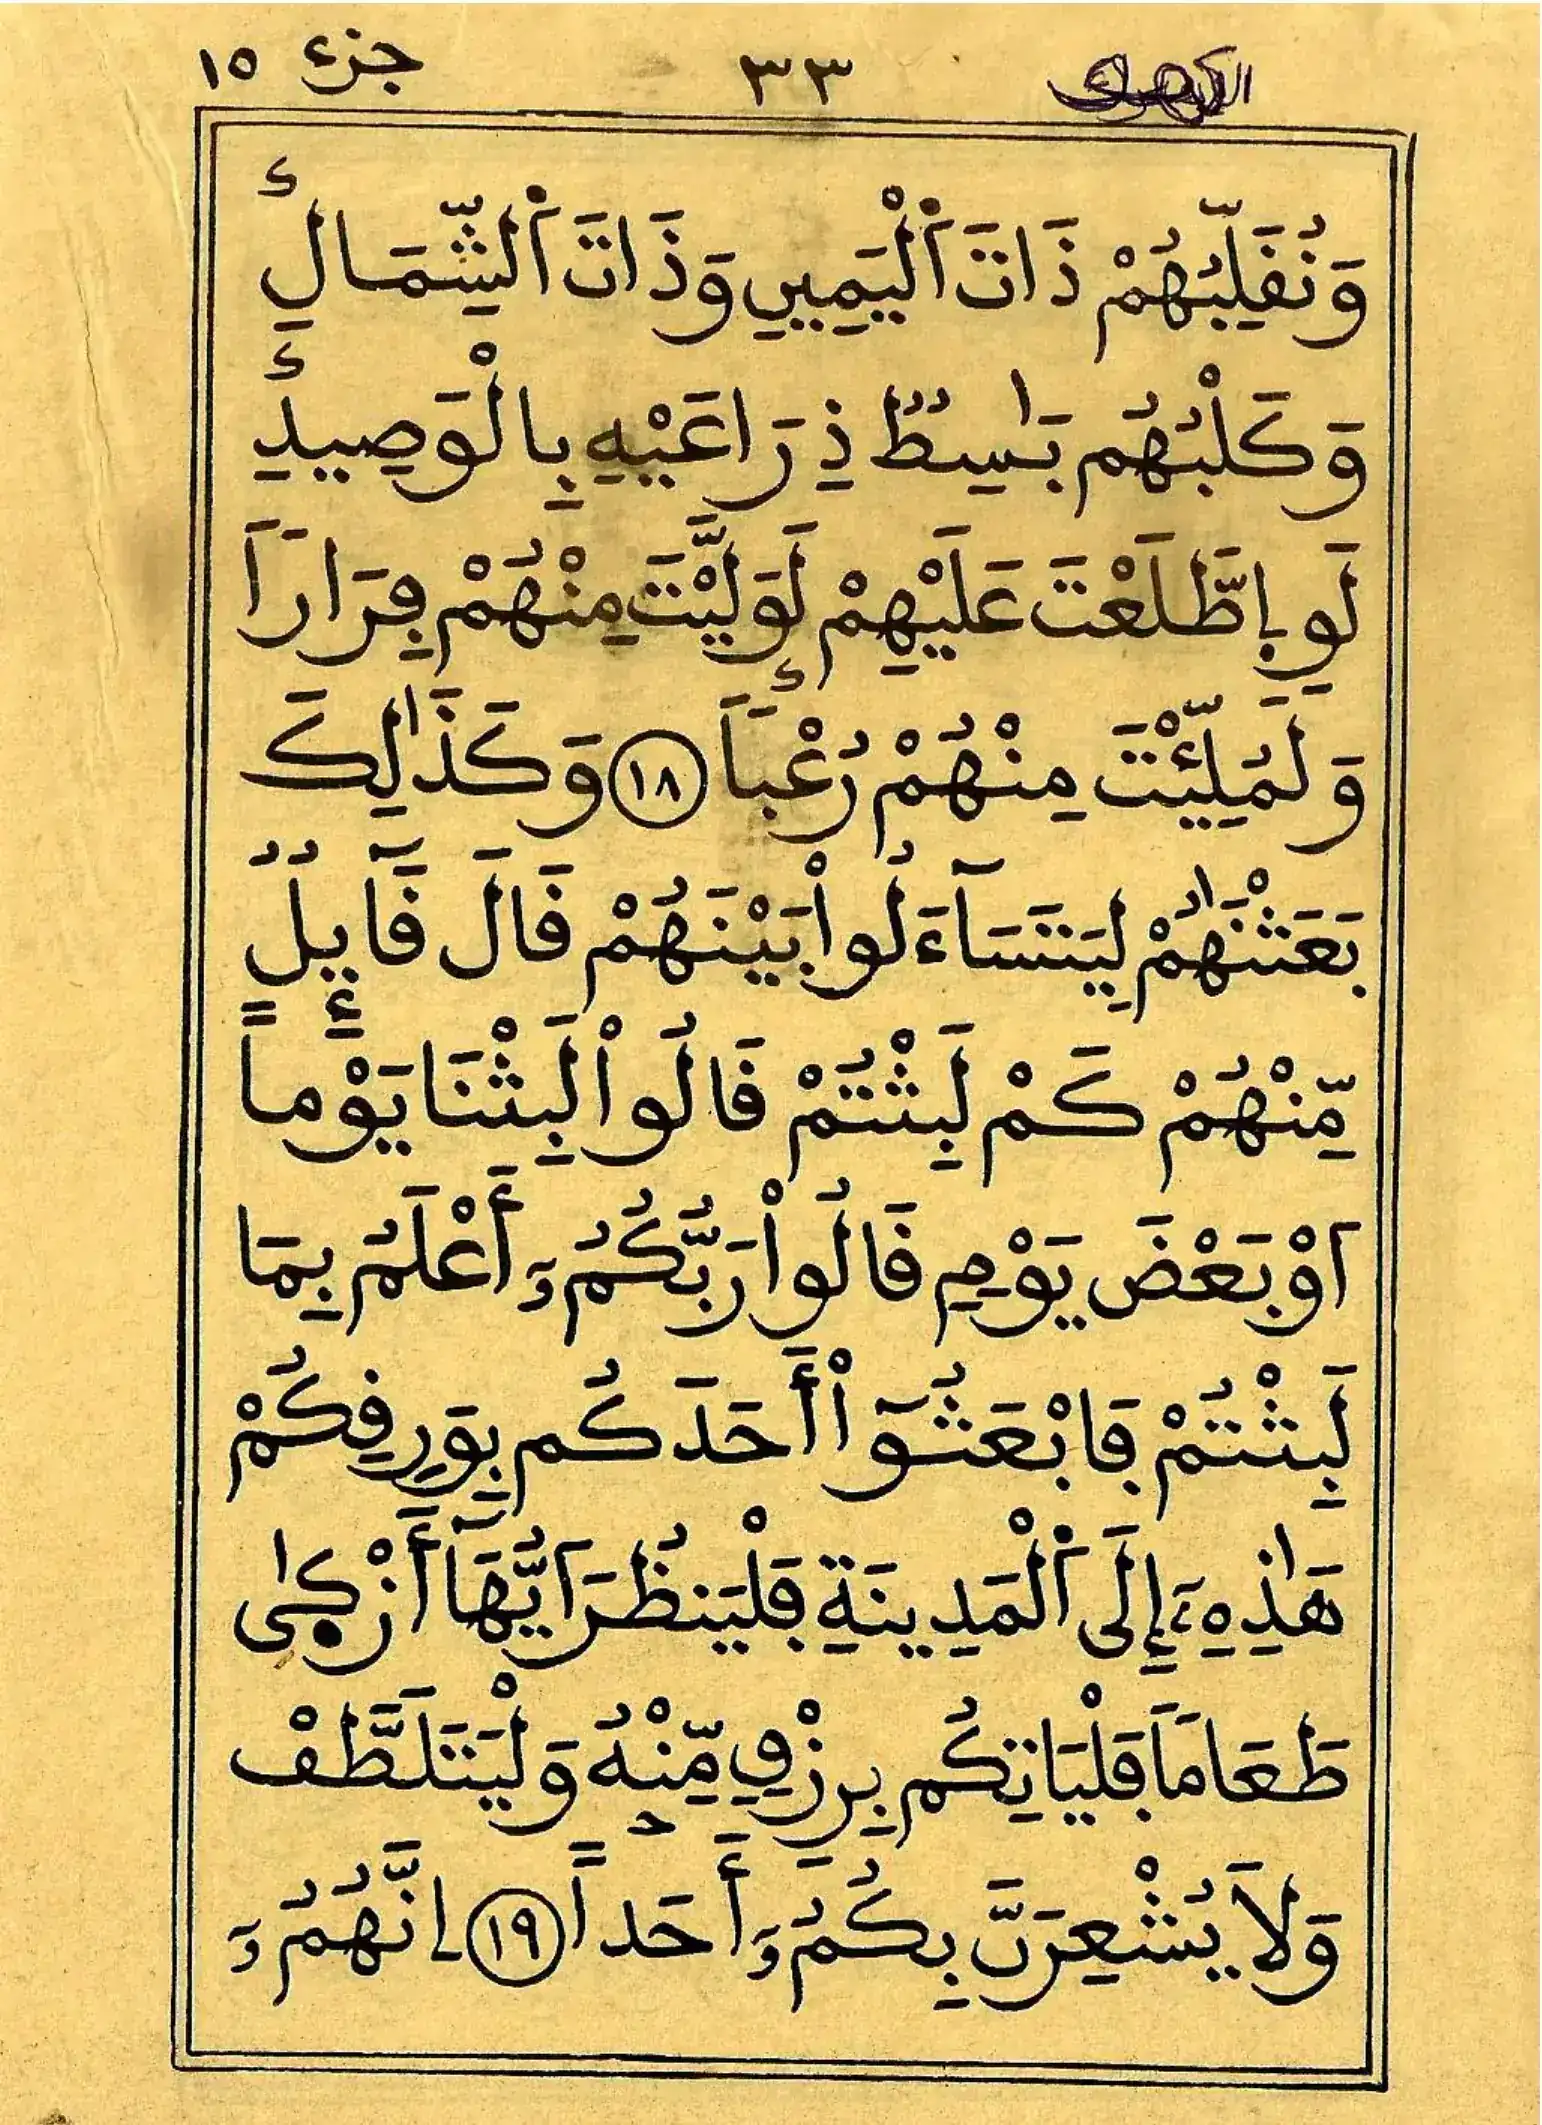 الكهف ٣٣ جزء ١٥
وَنُقَلِّبُهُمْ ذَاتَ اَ۬لْيَمِينِ وَذَاتَ اَ۬لشِّمَالِۖ
وَكَلْبُهُم بَٰسِطٞ ذِرَاعَيْهِ بِالْوَصِيدِۖ
لَوِ اِطَّلَعْتَ عَلَيْهِمْ لَوَلَّيْتَ مِنْهُمْ فِرَاراَ
وَلَمُلِّئْتَ مِنْهُمْ رُعْباَۖ ١٨ وَكَذَٰلِكَ
بَعَثْنَٰهُمْ لِيَتَسَآءَلُواْ بَيْنَهُمْ قَالَ قَآئِلٞ
مِّنْهُمْ كَمْ لَبِثْتُمْ قَالُواْ لَبِثْنَا يَوْماً
اَوْ بَعْضَ يَوْمٖ قَالُواْ رَبُّكُمُۥٓ أَعْلَمُ بِمَا
لَبِثْتُمْ فَابْعَثُوٓاْ أَحَدَكُم بِوَرِقِكُمْ
هَٰذِهِۦٓ إِلَى اَ۬لْمَدِينَةِ فَلْيَنظُرَ اَيُّهَآ أَزْك۪يٰ
طَعَاماَ فَلْيَاتِكُم بِرِزْقٖ مِّنْهُ وَلْيَتَلَطَّفْ
وَلَا يُشْعِرَنَّ بِكُمُۥٓ أَحَداًۖ ١٩ اِنَّهُمُۥٓ